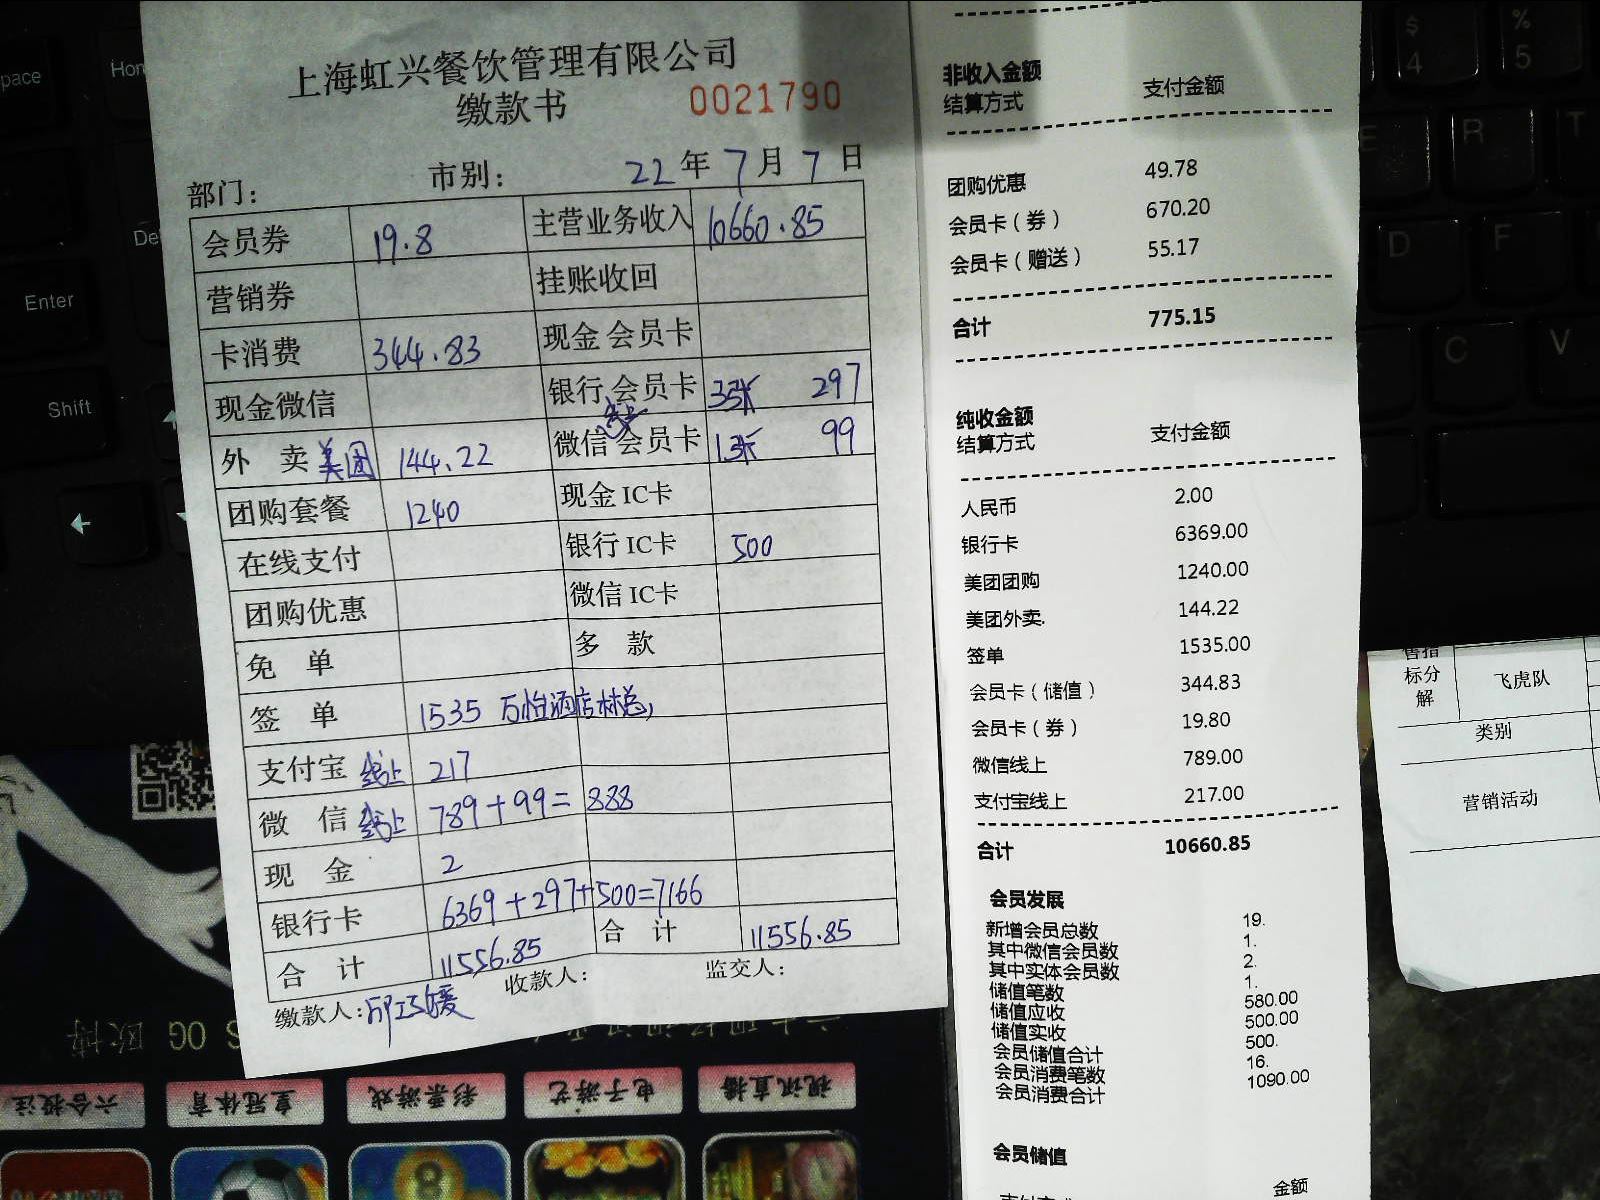 上海虹兴餐饮管理有限公司
缴款书
0021790
部门：
市别：
22 年 7 月 7 日
会员券 19.8 主营业务收入 10660.85
营销券 挂账收回
卡消费 344.83 现金 会员卡
现金微信 银行 会员卡 3张 297
外 卖 美团 144.22 微信 会员卡 1张 99
团购套餐 1240 现金 IC卡
在线支付 银行 IC卡 500
团购优惠 微信 IC卡
免 单 多 款
签 单 1535 万怡酒店林总
支付宝 线上 217
微 信 线上 789+99= 888
现 金 2
银行卡 6369+297+500=7166
合 计 11556.85 合 计 11556.85
缴款人：
收款人：
监交人：
非收入金额
结算方式 支付金额
团购优惠 49.78
会员卡（券） 670.20
会员卡（赠送） 55.17
合计 775.15
纯收金额
结算方式 支付金额
人民币 2.00
银行卡 6369.00
美团团购 1240.00
美团外卖. 144.22
签单 1535.00
会员卡（储值） 344.83
会员卡（券） 19.80
微信线上 789.00
支付宝线上 217.00
合计 10660.85
会员发展
新增会员总数 19.
其中微信会员数 1.
其中实体会员数 2.
储值笔数 1.
储值应收 580.00
储值实收 500.00
会员储值合计 500.
会员消费笔数 16.
会员消费合计 1090.00
会员储值
金额
标分
解
飞虎队
类别
营销活动
pace
Enter
Shift
$
4
%
5
E
R
T
D
F
C
V
OG 欧博
六合投注
皇冠体育
彩票游戏
电子游艺
视讯直播